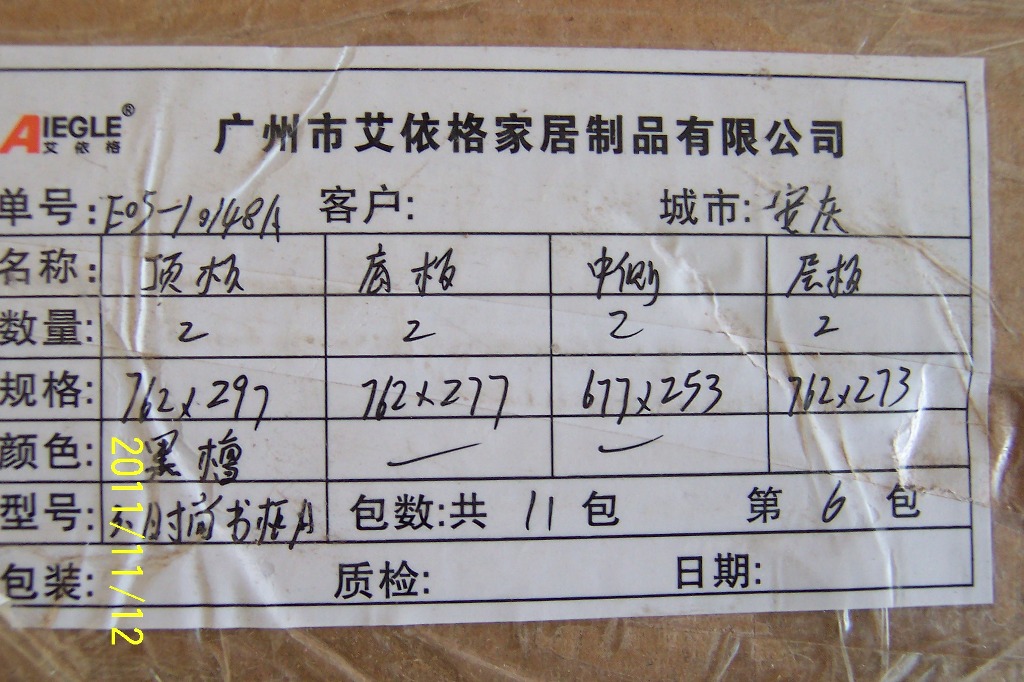 AIEGLE® 艾依格
广州市艾依格家居制品有限公司
单号: E05-10148A 客户: 城市: 安庆
名称: 顶板 底板 中侧 层板
数量: 2 2 2 2
规格: 762x297 762x277 677x253 762x273
颜色: 黑檀 — —
型号: 时尚书柜A 包数:共 11 包 第 6 包
包装: 质检: 日期:
2011/11/12